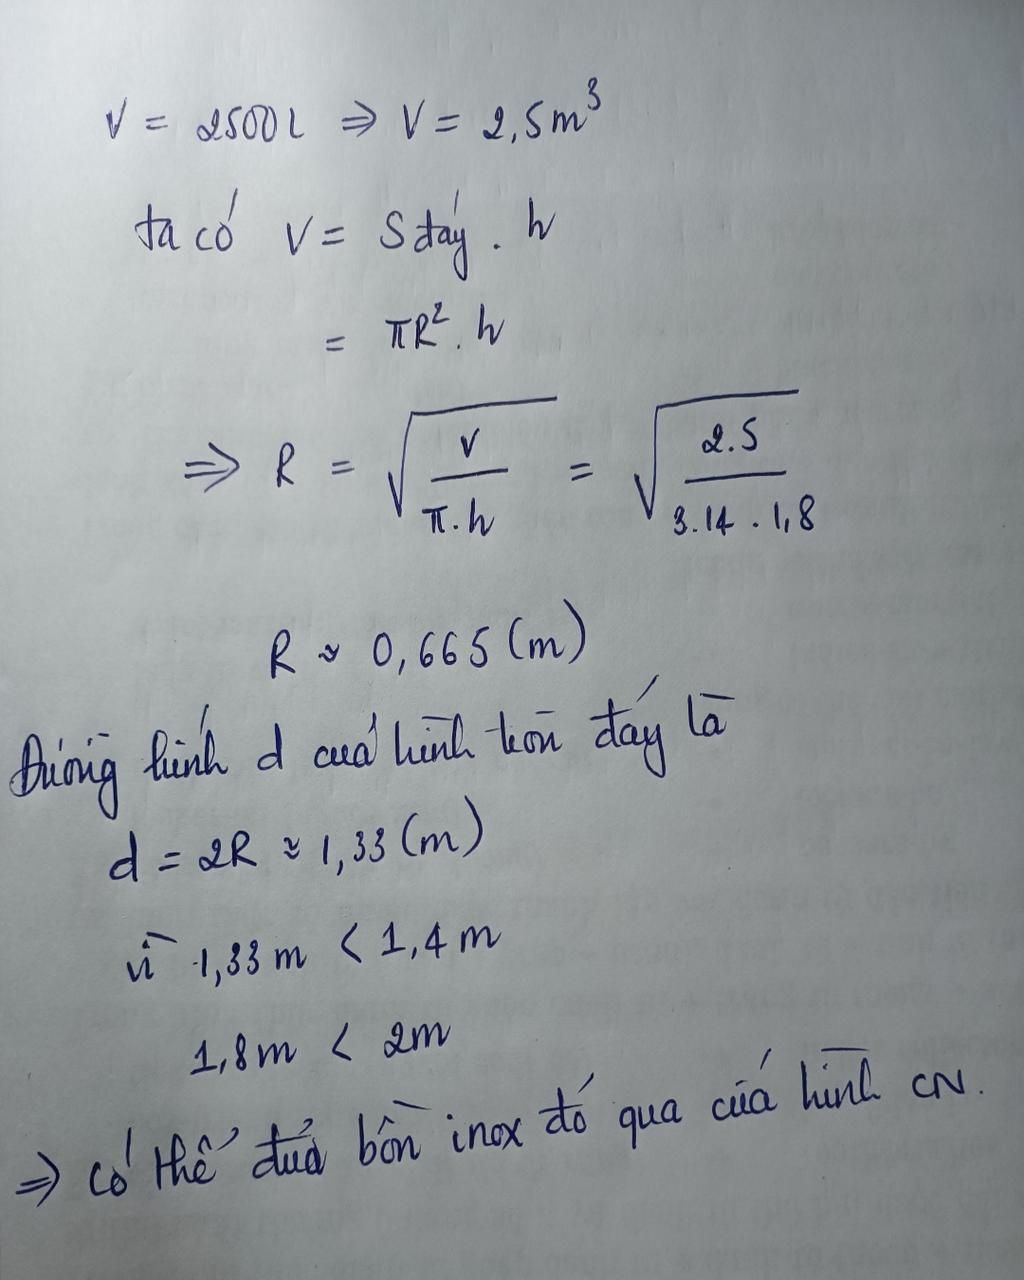 V = 2500L ⇒ V = 2,5m³
ta có V = S đáy . h
= πR² . h
⇒ R = √(V / π.h) = √(2.5 / 3.14 . 1,8)
R ≈ 0,665 (m)
Đường kính d của hình tròn đáy là
d = 2R ≈ 1,33 (m)
vì 1,33m < 1,4m
1,8m < 2m
⇒ có thể đưa bồn inox đó qua cửa hình CN.